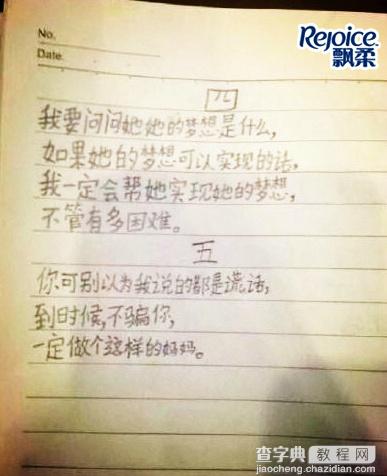 Rejoice
飘柔
No.
Date.
四
我要问问她她的梦想是什么,
如果她的梦想可以实现的话,
我一定会帮她实现她的梦想,
不管有多困难。
五
你可别以为我说的都是谎话,
到时候,不骗你,
一定做个这样的好妈。
查字典 教程网
jiaocheng.chazidian.com